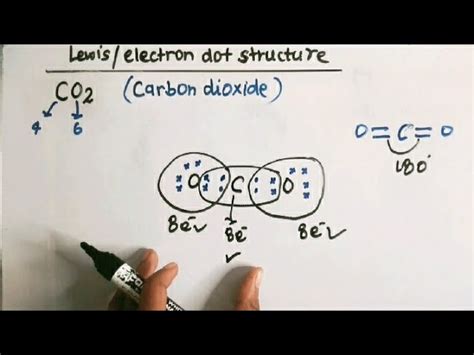 Lewis/electron dot structure
CO2 (Carbon dioxide)
4 6
O=C=O
180°
O C O
8e⁻✓ 8e⁻ 8e⁻✓
✓